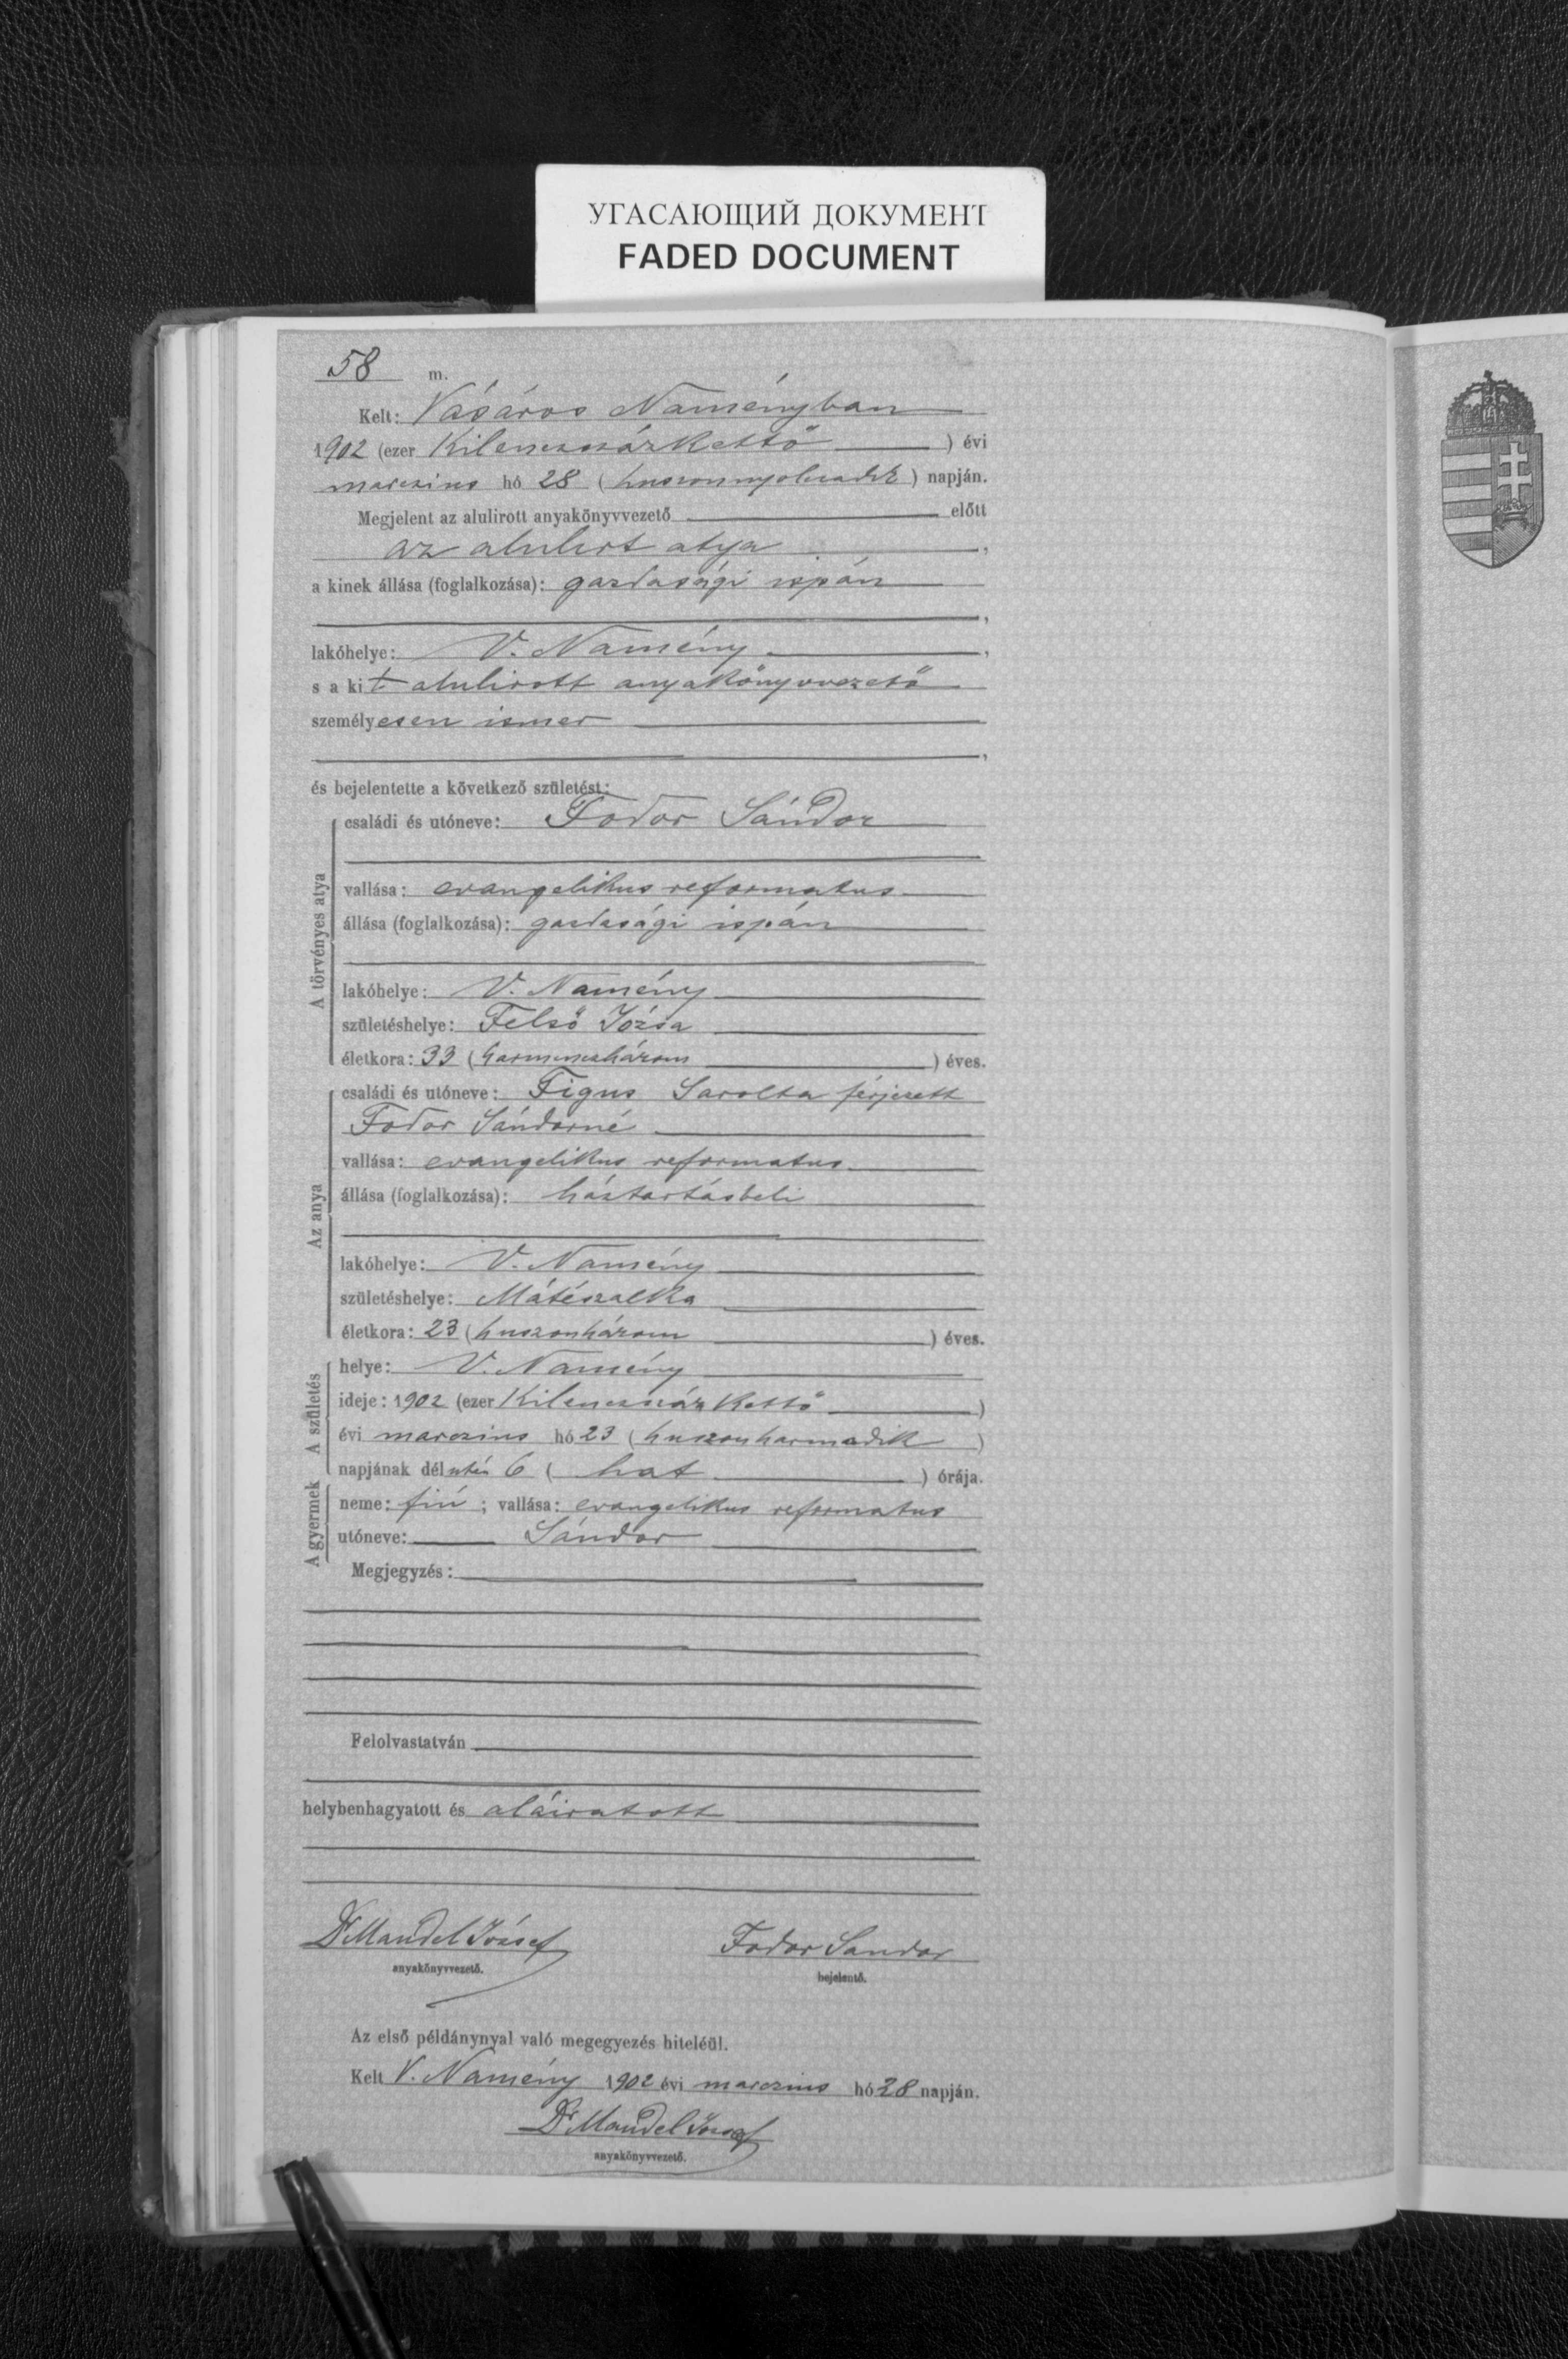 УГАСАЮЩИЙ ДОКУМЕНТ
FADED DOCUMENT
58 m.
Kelt: Vásáros Naményban
1902 (ezer Kilenczszázkettő ) évi
marczius hó 28 (huszonnyolczadik) napján.
Megjelent az alulirott anyakönyvvezető előtt
az alulirt atya ,
a kinek állása (foglalkozása): gazdasági ispán
,
lakóhelye: V. Namény ,
s a kit alulirott anyakönyvvezető
személyesen ismer
,
és bejelentette a következő születést:
A törvényes atya
családi és utóneve: Fodor Sándor
vallása: evangelikus reformatus
állása (foglalkozása): gazdasági ispán
lakóhelye: V. Namény
születéshelye: Felső Józsa
életkora: 33 (harminczhárom ) éves.
Az anya
családi és utóneve: Figus Sarolta férjezett
Fodor Sándorné
vallása: evangelikus reformatus
állása (foglalkozása): háztartásbeli
lakóhelye: V. Namény
születéshelye: Mátészalka
életkora: 23 (huszonhárom ) éves.
A születés
helye: V. Namény
ideje: 1902 (ezer Kilenczszázkettő )
évi marczius hó 23 (huszonharmadik )
napjának délután 6 ( hat ) órája.
A gyermek
neme: fiú ; vallása: evangelikus reformatus
utóneve: Sándor
Megjegyzés:
Felolvastatván
helybenhagyatott és aláiratott
Dr Mandel József Fodor Sandor
anyakönyvvezető. bejelentő.
Az első példánynyal való megegyezés hiteléül.
Kelt V. Namény 1902 évi marczius hó 28 napján.
Dr Mandel József
anyakönyvvezető.